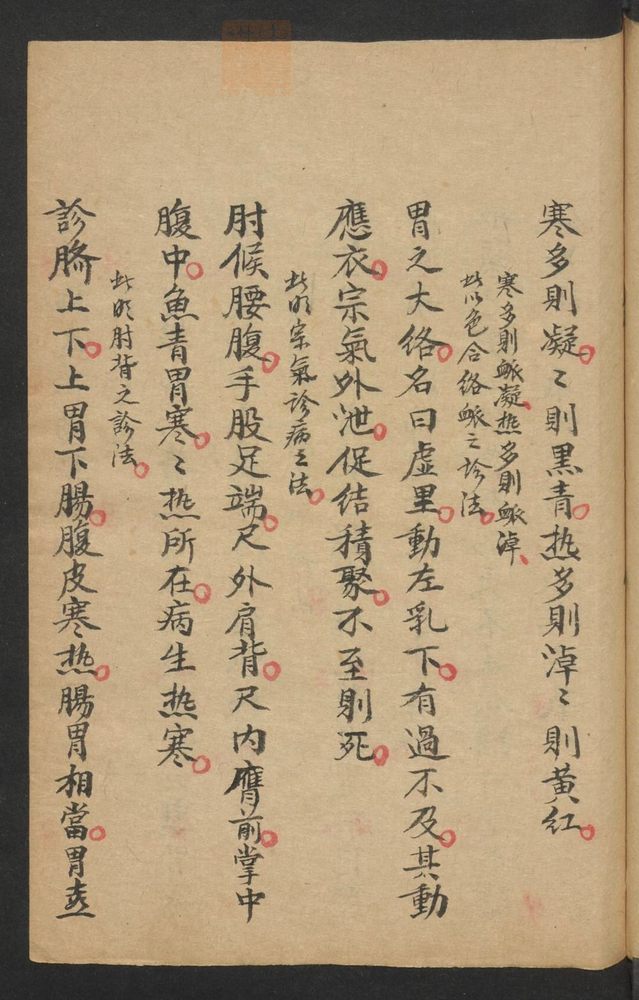 寒多則凝〻則黒青热多則淖〻則黄紅
寒多則脈凝热多則脈淖
此以色合絡脈之診法
胃之大络名曰虚里動左乳下有過不及其動
應衣宗氣外泄促结積聚不至則死
此明宗氣診病之法
肘候腰腹手股足端尺外肩背尺内膺前掌中
腹中魚青胃寒〻热所在病生热寒
此明肘背之診法
診臍上下上胃下腸腹皮寒热腸胃相當胃壴